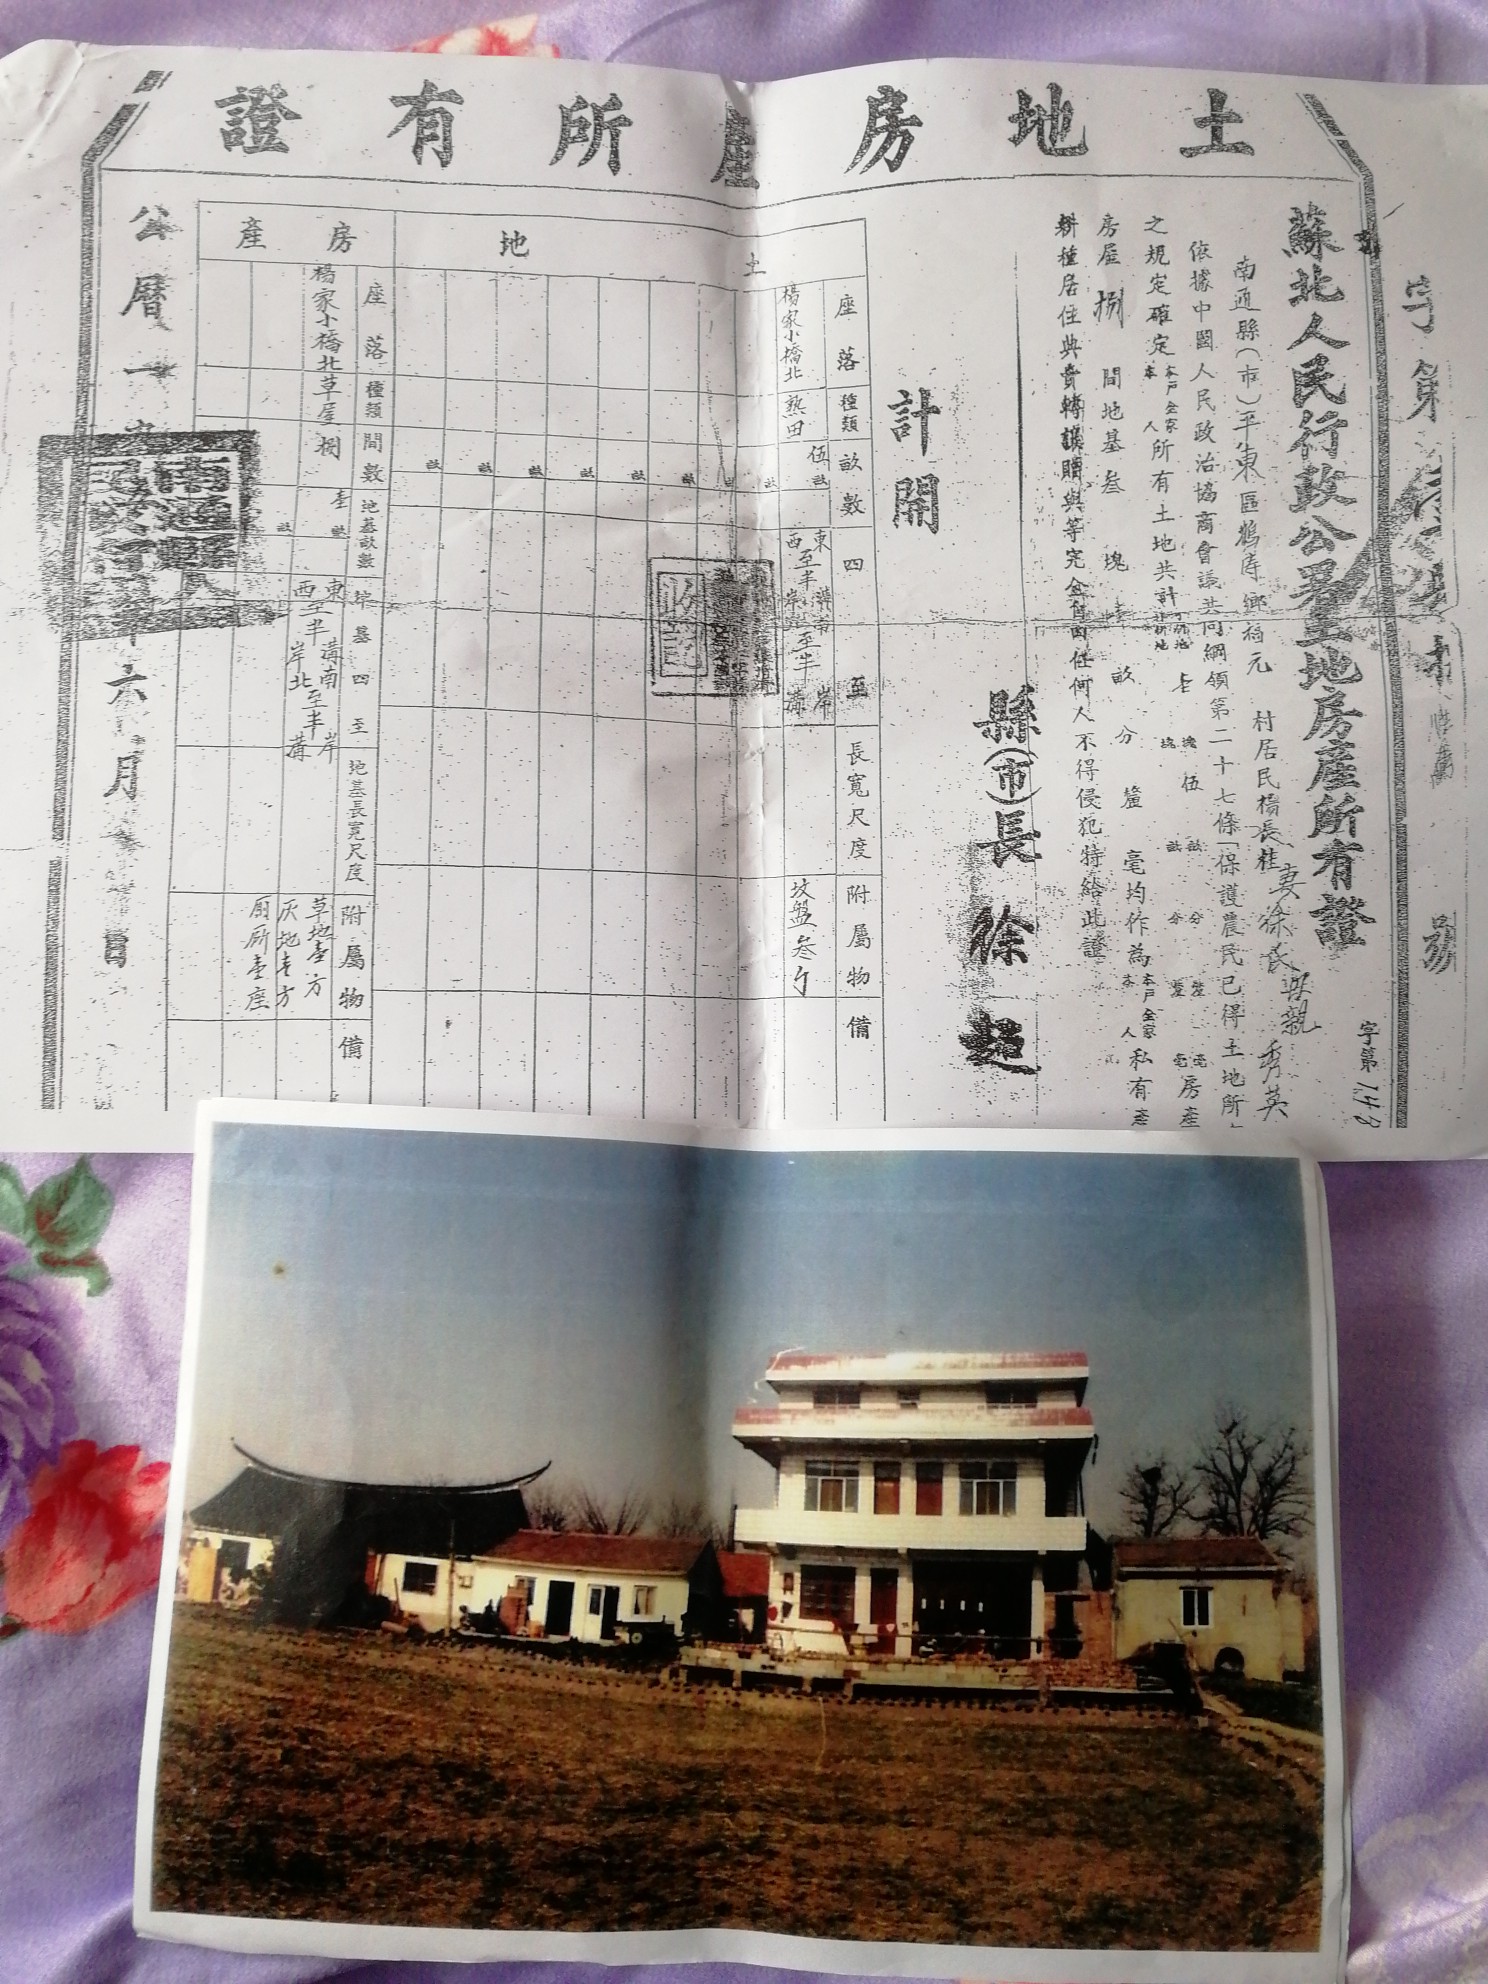 土地房產所有證
字第
號
蘇北人民行政公署土地房產所有證
字第1.48
南通縣(市)平東區鶴壽鄉福元村居民楊長桂
妻徐氏母親秀英
依據中國人民政治協商會議共同綱領第二十七條「保護農民已得土地所
之規定確定本戶全家本人所有土地共計
伍畝分釐毫房產
房屋捌間地基叁塊畝分釐毫均作為本戶全家本人私有產
耕種居住典賣轉讓贈與等完全自由任何人不得侵犯特給此證
縣(市)長徐
計開
土地
座落
種類
畝數
四至
長寬尺度
附屬物
備
楊家小橋北
熟田
伍畝
東至半溝
西至半岸
坟盤叁
房產
座落
種類
間數
地基畝數
地基四至
地基長寬尺度
附屬物
備
楊家小橋北
草屋
捌
壹畝
東至半溝南至半岸
西至半岸北至半溝
草地壹方
灰地壹方
廁所壹座
公曆一
年六月
日
南通縣人